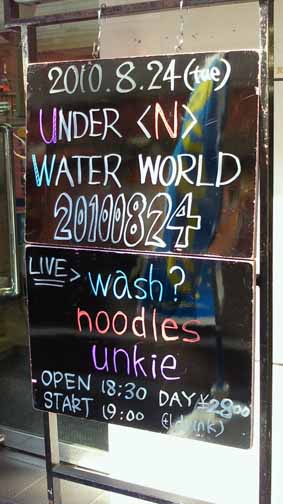 2010.8.24(tue)
UNDER <N>
WATER WORLD
20100824
LIVE> wash?
noodles
unkie
OPEN 18:30 DAY ¥2800
START 19:00 (+1drink)